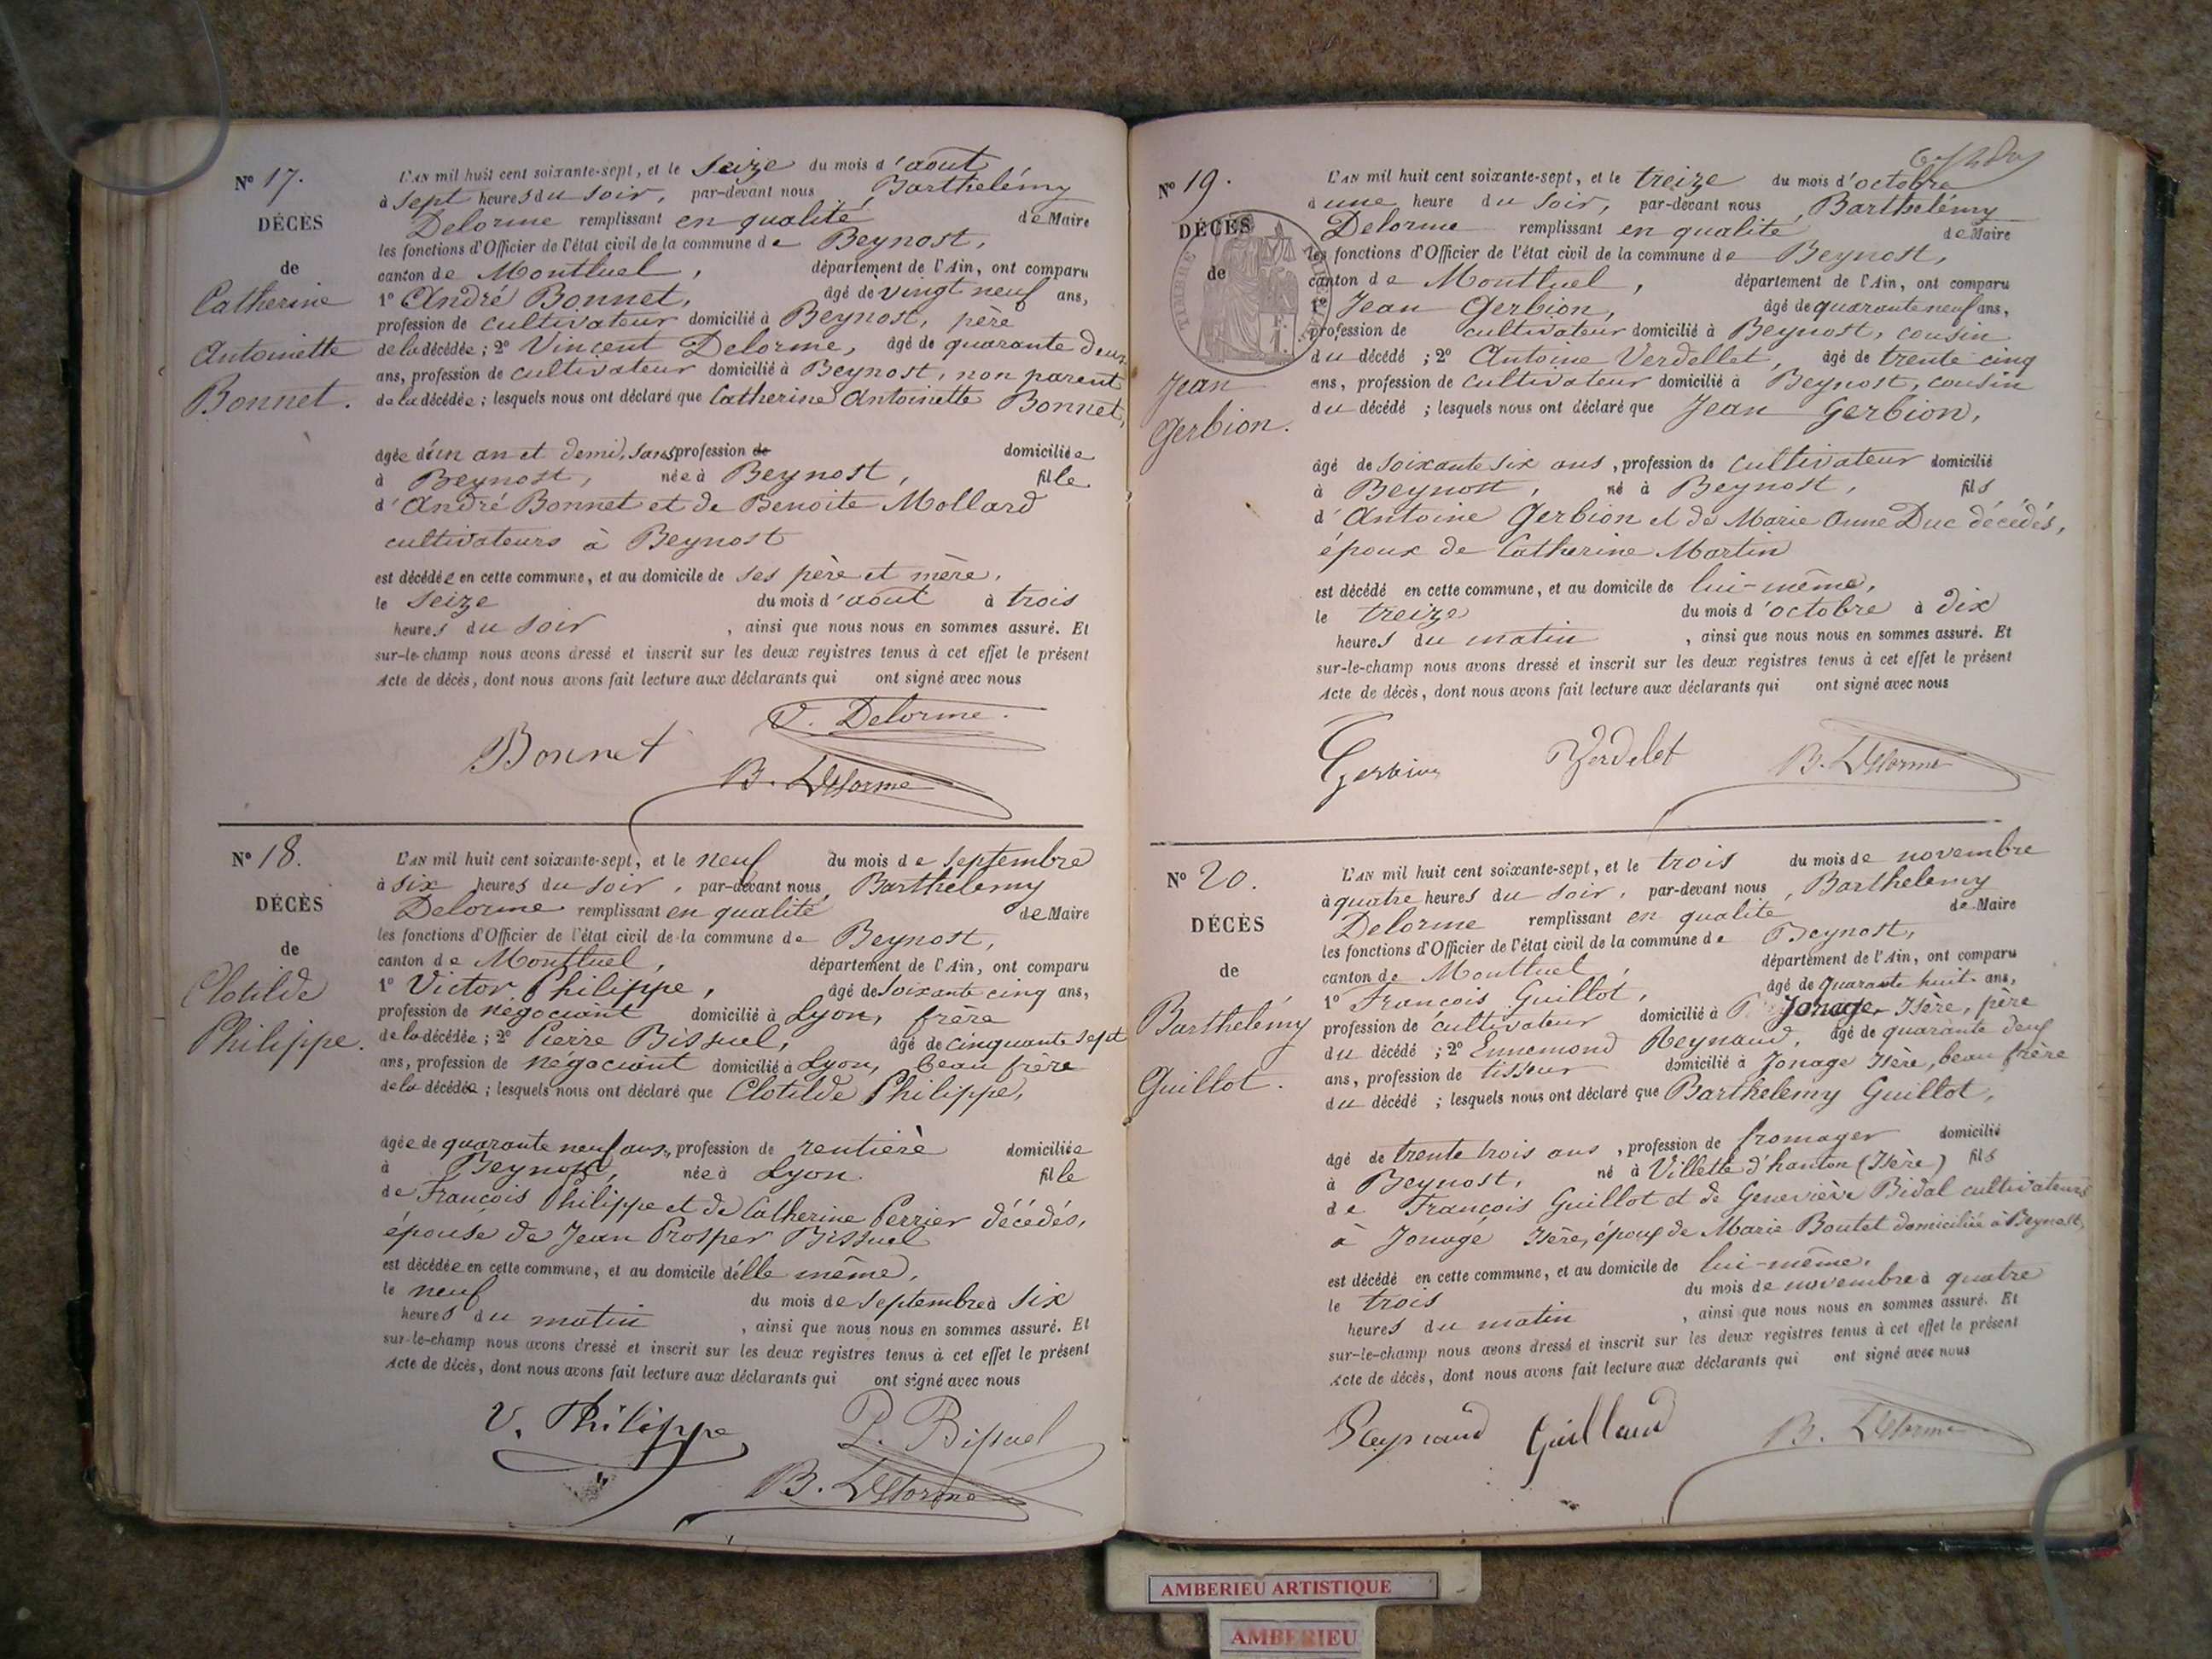 N° 17.
DÉCÈS
de
Catherine
Antoinette
Bonnet.
L'AN mil huit cent soixante-sept, et le seize du mois d'août
à sept heures du soir, par-devant nous, Barthelémy
Delorme remplissant en qualité de Maire
les fonctions d'Officier de l'état civil de la commune de Beynost,
canton de Montluel, département de l'Ain, ont comparu
1° André Bonnet, âgé de vingt neuf ans,
profession de cultivateur domicilié à Beynost, père
de la décédée; 2° Vincent Delorme, âgé de quarante deux
ans, profession de cultivateur domicilié à Beynost, non parent
de la décédée; lesquels nous ont déclaré que Catherine Antoinette Bonnet,
âgée d'un an et demi, sans profession de domiciliée
à Beynost, née à Beynost, fille
d'André Bonnet et de Benoite Mollard
cultivateurs à Beynost
est décédée en cette commune, et au domicile de ses père et mère,
le seize du mois d'août à trois
heures du soir, ainsi que nous nous en sommes assuré. Et
sur-le-champ nous avons dressé et inscrit sur les deux registres tenus à cet effet le présent
Acte de décès, dont nous avons fait lecture aux déclarants qui ont signé avec nous
V. Delorme.
Bonnet
B. Delorme
N° 18.
DÉCÈS
de
Clotilde
Philippe.
L'AN mil huit cent soixante-sept, et le neuf du mois de septembre
à six heures du soir, par-devant nous, Barthelemy
Delorme remplissant en qualité de Maire
les fonctions d'Officier de l'état civil de la commune de Beynost,
canton de Montluel, département de l'Ain, ont comparu
1° Victor Philippe, âgé de soixante cinq ans,
profession de négociant domicilié à Lyon, frère
de la décédée; 2° Pierre Bissuel, âgé de cinquante sept
ans, profession de négociant domicilié à Lyon, beau frère
de la décédée; lesquels nous ont déclaré que Clotilde Philippe,
âgée de quarante neuf ans, profession de rentière domiciliée
à Beynost, née à Lyon. fille
de François Philippe et de Catherine Perrier décédés,
épouse de Jean Prosper Bissuel
est décédée en cette commune, et au domicile d'elle même,
le neuf du mois de septembre à six
heures du matin, ainsi que nous nous en sommes assuré. Et
sur-le-champ nous avons dressé et inscrit sur les deux registres tenus à cet effet le présent
Acte de décès, dont nous avons fait lecture aux déclarants qui ont signé avec nous
V. Philippe P. Bissuel
B. Delorme
N° 19.
DÉCÈS
de
Jean
Gerbion.
TIMBRE
L'AN mil huit cent soixante-sept, et le treize du mois d'octobre
à une heure du soir, par-devant nous, Barthelémy
Delorme remplissant en qualité de Maire
les fonctions d'Officier de l'état civil de la commune de Beynost,
canton de Montluel, département de l'Ain, ont comparu
1° Jean Gerbion, âgé de quarante neuf ans,
profession de cultivateur domicilié à Beynost, cousin
du décédé; 2° Antoine Verdellet, âgé de trente cinq
ans, profession de cultivateur domicilié à Beynost, cousin
du décédé; lesquels nous ont déclaré que Jean Gerbion,
âgé de soixante six ans, profession de cultivateur domicilié
à Beynost, né à Beynost, fils
d'Antoine Gerbion et de Marie Anne Duc décédés,
époux de Catherine Martin
est décédé en cette commune, et au domicile de lui-même,
le treize du mois d'octobre à dix
heures du matin, ainsi que nous nous en sommes assuré. Et
sur-le-champ nous avons dressé et inscrit sur les deux registres tenus à cet effet le présent
Acte de décès, dont nous avons fait lecture aux déclarants qui ont signé avec nous
Gerbion Verdelet B. Delorme
N° 20.
DÉCÈS
de
Barthelémy
Guillot.
L'AN mil huit cent soixante-sept, et le trois du mois de novembre
à quatre heures du soir, par-devant nous, Barthelemy
Delorme remplissant en qualité de Maire
les fonctions d'Officier de l'état civil de la commune de Beynost,
canton de Montluel, département de l'Ain, ont comparu
1° François Guillot, âgé de quarante huit ans,
profession de cultivateur domicilié à Jonage, Isère, père
du décédé; 2° Ennemond Reynaud, âgé de quarante deux
ans, profession de tisseur domicilié à Jonage Isère, beau frère
du décédé; lesquels nous ont déclaré que Barthelemy Guillot,
âgé de trente trois ans, profession de fromager domicilié
à Beynost, né à Villette d'hanton (Isère) fils
de François Guillot et de Geneviève Bidal cultivateurs
à Jonage Isère, époux de Marie Boutet domiciliée à Beynost,
est décédé en cette commune, et au domicile de lui-même,
le trois du mois de novembre à quatre
heures du matin, ainsi que nous nous en sommes assuré. Et
sur-le-champ nous avons dressé et inscrit sur les deux registres tenus à cet effet le présent
Acte de décès, dont nous avons fait lecture aux déclarants qui ont signé avec nous
Reynaud Guillaud B. Delorme
AMBERIEU ARTISTIQUE
AMBERIEU